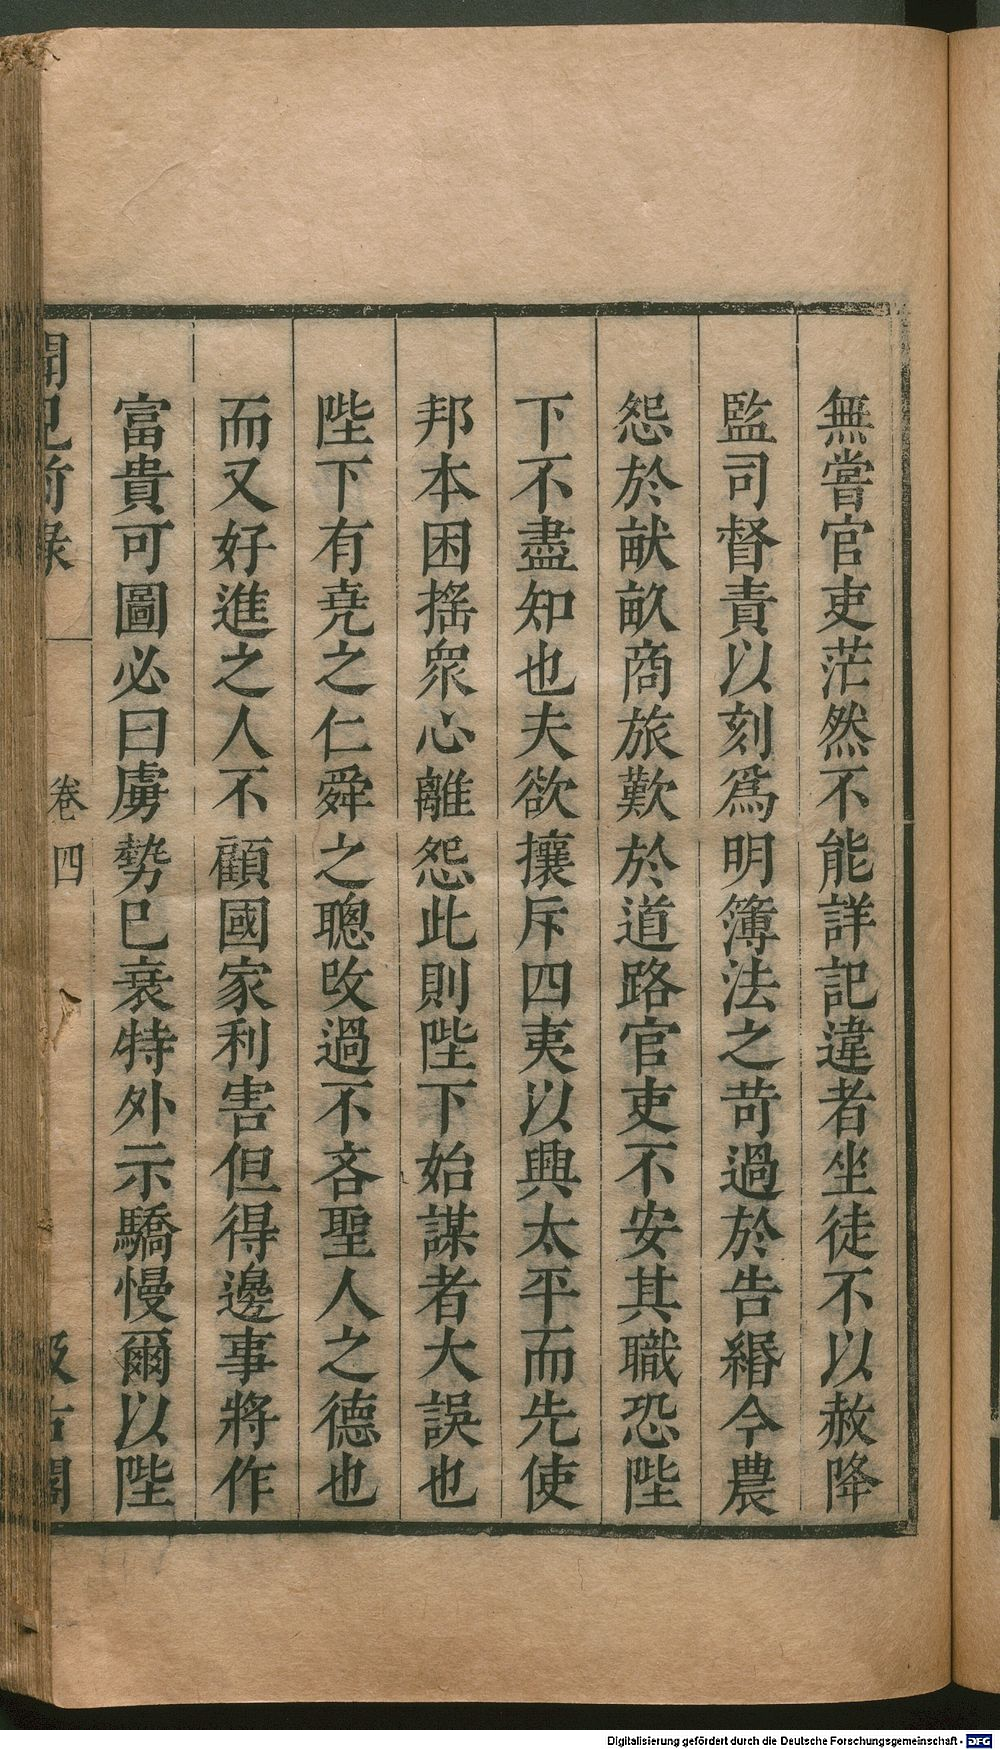 無嘗官吏茫然不能詳記違者坐徒不以赦降
監司督責以刻爲明簿法之苛過於告緡今農
怨於畎畝商旅歎於道路官吏不安其職恐陛
下不盡知也夫欲攘斥四夷以興太平而先使
邦本困搖衆心離怨此則陛下始謀者大誤也
陛下有堯之仁舜之聰改過不吝聖人之德也
而又好進之人不顧國家利害但得邊事將作
富貴可圖必曰虜勢已衰特外示驕慢爾以陛
聞見前錄 卷四 汲古閣
Digitalisierung gefördert durch die Deutsche Forschungsgemeinschaft - DFG